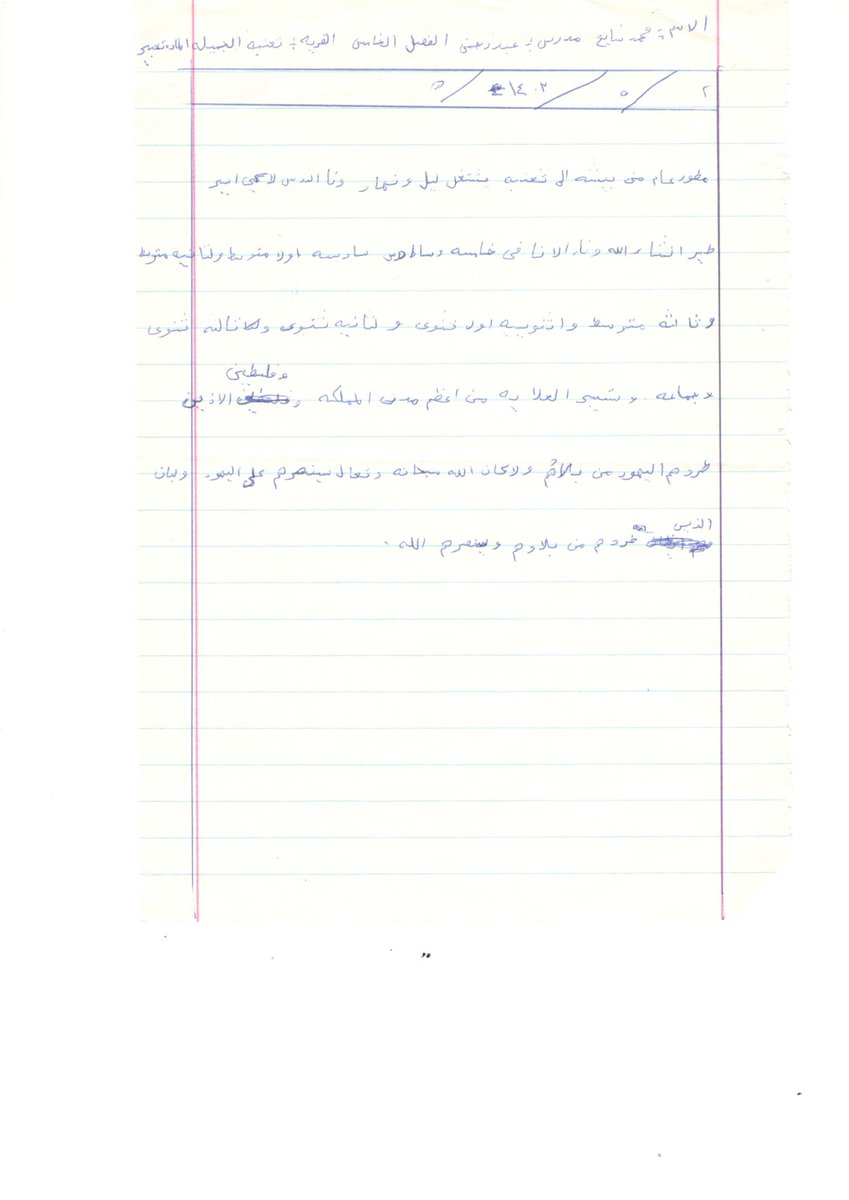 الاسم : محمد شايع مدرس : عبد رحمن الفصل الخامس القريه : تعنيه الجميله الماده تعبير
٢ / ٥ / ١٤٠٣ / ٥
مطور عام من بيشه الى تعنيه يشتغل ليل ونهار ونا ادرس لاجي ابير
طير انشاء الله ونا، الانا في خامسه وسادس سادسه اولا متوسط ولثانيه متوسط
وثالثه متوسط واثنويه اول ثنوى ولثانيه ثنوى ولثالثه ثنوى
وجماعه وتعتبر العلايه من اعظم مدن المملكه وفلسطين الاذين
طردهم اليهود من بلادهم ولاكان الله سبحانه وتعال سينصرهم على اليهود ولبان
الذين طردهم من بلادهم وينصرهم الله .